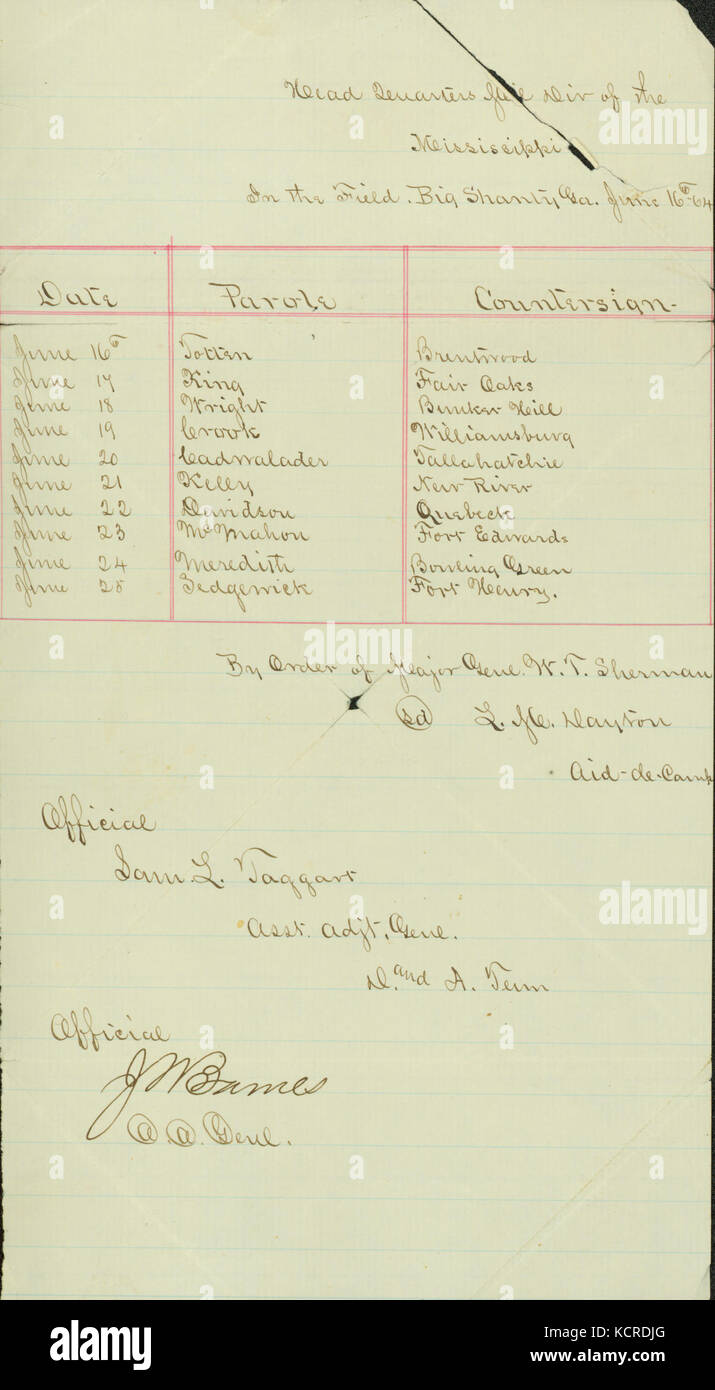 Head Quarters Mil Div of the
Mississippi
In the Field. Big Shanty Ga. June 16th 64
Date Parole Countersign-
June 16th Totten Brentwood
June 17 King Fair Oaks
June 18 Wright Bunker Hill
June 19 Crook Williamsburg
June 20 Cadwalader Tallahatchie
June 21 Kelly New River
June 22 Davidson Quebeck
June 23 McMahon Fort Edwards
June 24 Meredith Bowling Green
June 25 Sedgewick Fort Henry.
By Order of Major Genl. W. T. Sherman
sd L. M. Dayton
Aid-de-Camp
Official
Sam L. Taggart
Asst. Adjt. Genl.
D. and A. Tenn
Official
J W Barnes
A. A. Genl.
alamy
Image ID: KCRDJG
www.alamy.com